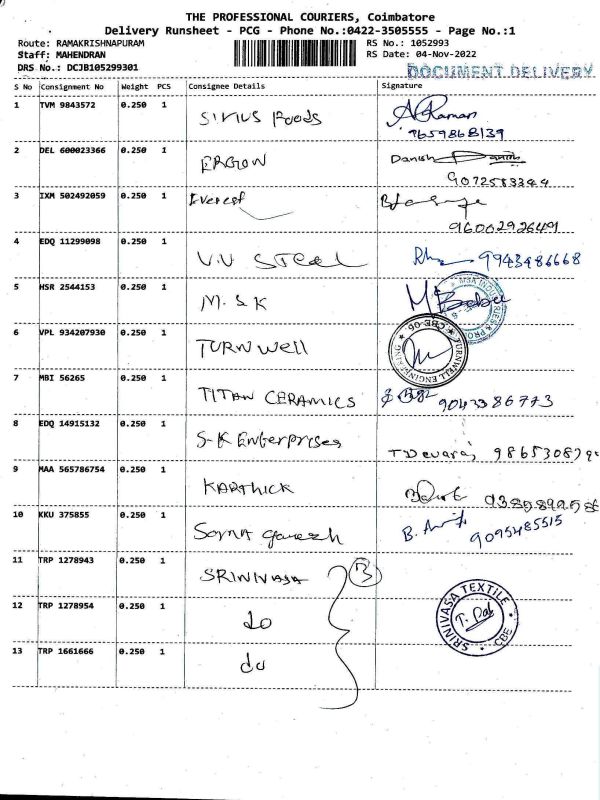 THE PROFESSIONAL COURIERS, Coimbatore
Delivery Runsheet - PCG - Phone No.:0422-3505555 - Page No.:1
Route: RAMAKRISHNAPURAM RS No.: 1052993
Staff: MAHENDRAN RS Date: 04-Nov-2022
DRS No.: DCJB105299301 DOCUMENT DELIVERY
S No Consignment No Weight PCS Consignee Details Signature
1 TVM 9843572 0.250 1 Sirius Foods Raman
9659868139
2 DEL 600023366 0.250 1 ERGON Danish
9072583344
3 IXM 502492059 0.250 1 Everest
9600292649
4 EDQ 11299098 0.250 1 V.V STEEL 9943486668
5 HSR 2544153 0.250 1 M.S K M Babu
MSK INDUSTRIES
6 VPL 934207930 0.250 1 TURN well
TURNWELL ENGINEERING CBE-06
7 MBI 56265 0.250 1 TITAN CERAMICS 9043386773
8 EDQ 14915132 0.250 1 S-K Enterprises
T Devaraj
9 MAA 565786754 0.250 1 KARTHICK
10 KKU 375855 0.250 1 Soma Ganesh B.
9095485515
11 TRP 1278943 0.250 1 SRINIVASA 3
12 TRP 1278954 0.250 1 do
SRINIVASA TEXTILE CBE
13 TRP 1661666 0.250 1 do